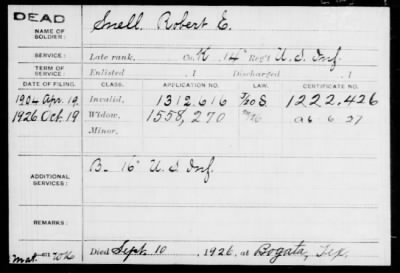 DEAD
NAME OF SOLDIER: Snell, Robert E.
SERVICE: Late rank, Co. K, 14" Reg't U.S. Inf.
TERM OF SERVICE: Enlisted , 1 Discharged , 1
DATE OF FILING. CLASS. APPLICATION NO. LAW. CERTIFICATE NO.
1904 Apr. 19. Invalid, 1312,616 S. 1,222,426
1926 Oct. 19 Widow, 1558,270 a6 6 27
Minor,
ADDITIONAL SERVICES: B- 16" U.S. Inf.
REMARKS:
Died Sept. 10, 1926, at Bogata, Tex.